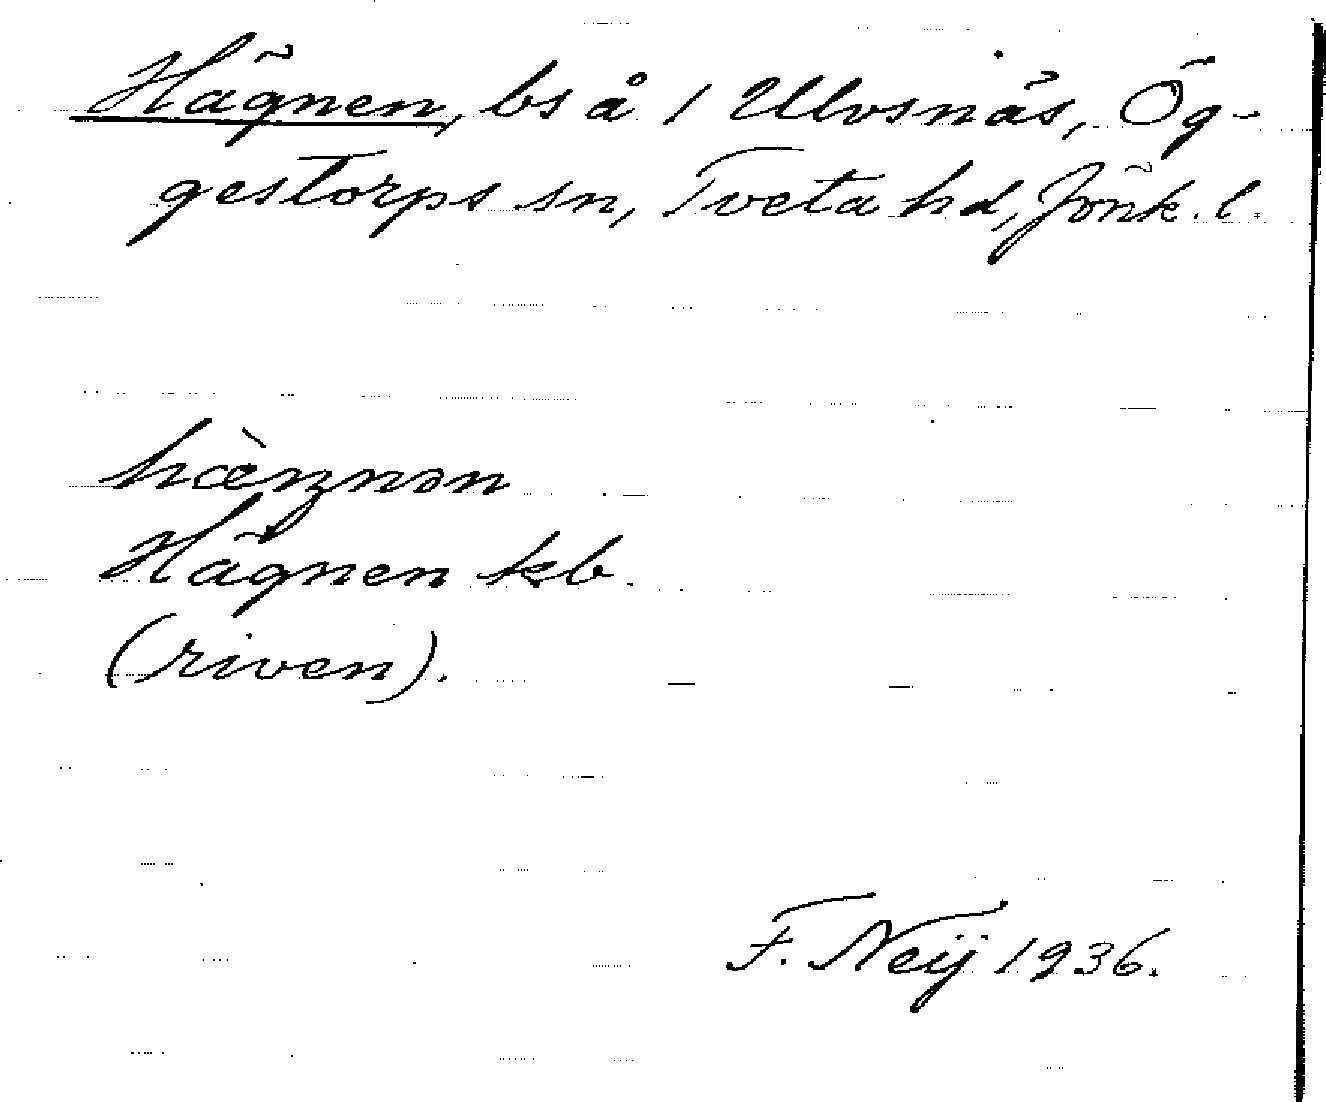 Hägnen, bs å 1 Ulvsnäs, Ög-
gestorps sn, Tveta hd, Jönk. l.
hæ̀ŋnən
Hägnen kb.
(riven).
F. Neij 1936.